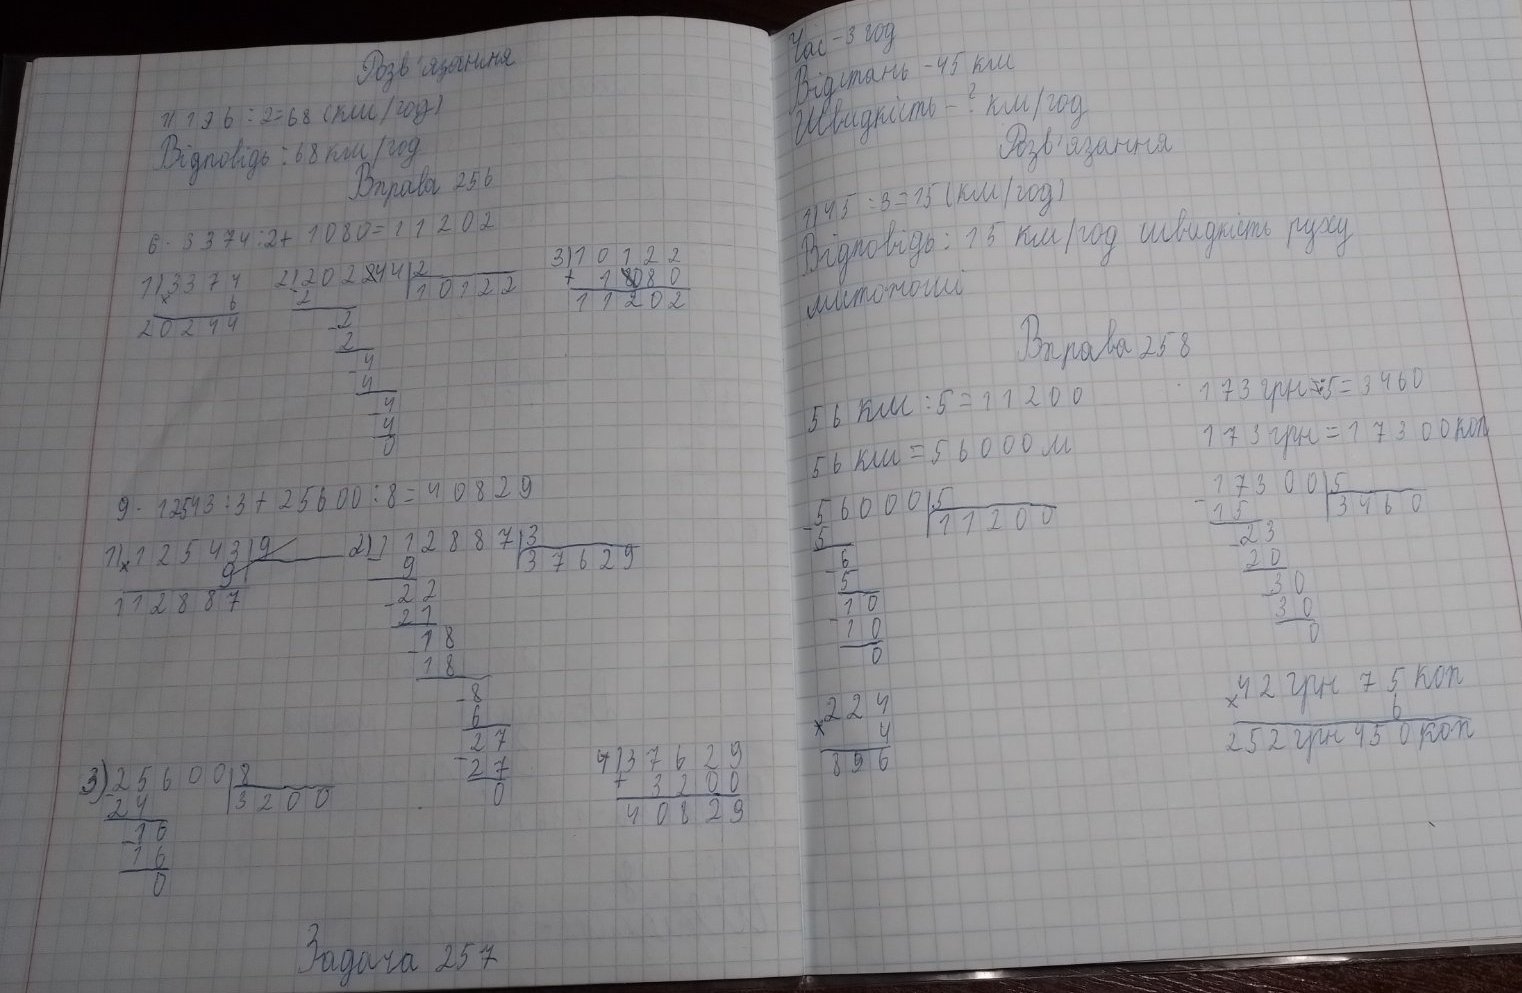 Розв'язання
1) 136 : 2 = 68 (км/год)
Відповідь : 68 км/год
Вправа 256
6 · 3374 : 2 + 1080 = 11202
1) 3374
× 6
20244
2) 20244 | 2
10122
- 2
2
- 2
4
- 4
4
- 4
0
3) 10122
+ 1080
11202
9 · 12543 : 3 + 25600 : 8 = 40829
1) 12543
× 9
112887
2) 112887 | 3
37629
- 9
22
- 21
18
- 18
8
- 6
27
- 27
0
3) 25600 | 8
3200
- 24
16
- 16
0
4) 37629
+ 3200
40829
Задача 257
Час - 3 год
Відстань - 45 км
Швидкість - ? км/год
Розв'язання
1) 45 : 3 = 15 (км/год)
Відповідь : 15 км/год швидкість руху
Вправа 258
56 км : 5 = 11200
56 км = 56000 м
56000 | 5
11200
- 5
6
- 5
10
- 10
0
224
× 4
896
173 грн : 5 = 3460
173 грн = 17300 коп
17300 | 5
3460
- 15
23
- 20
30
- 30
0
42 грн 75 коп
× 6
252 грн 450 коп